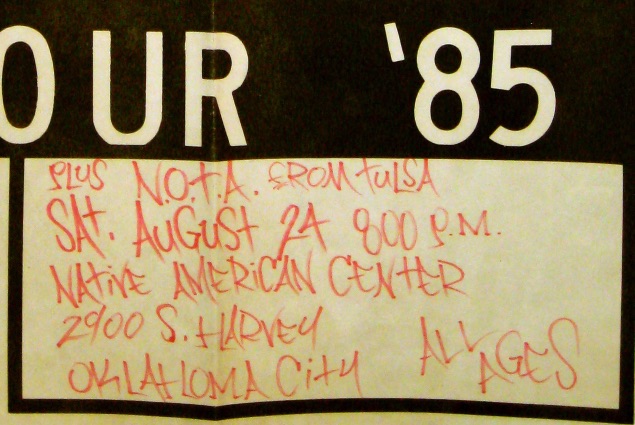 OUR '85
PLUS N.O.T.A. FROM TULSA
SAT. AUGUST 24 800 P.M.
NATIVE AMERICAN CENTER
2900 S. HARVEY
OKLAHOMA CITY
ALL AGES